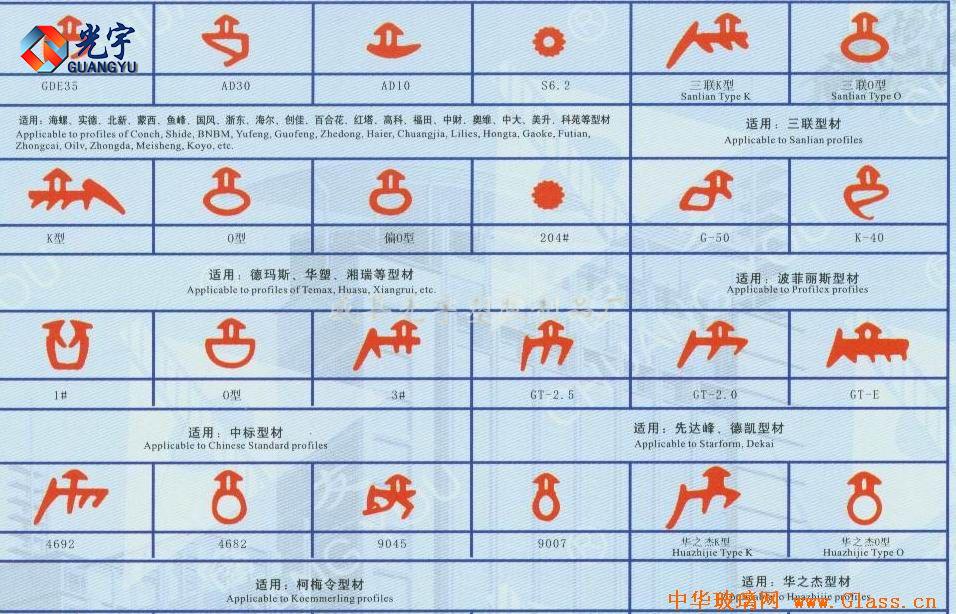 光宇
GUANGYU
GDE35
AD30
AD10
S6.2
三联K型
Sanlian Type K
三联O型
Sanlian Type O
适用：海螺、实德、北新、蒙西、鱼峰、国风、浙东、海尔、创佳、百合花、红塔、高科、福田、中财、奥维、中大、美升、科苑等型材
Applicable to profiles of Conch, Shide, BNBM, Yufeng, Guofeng, Zhedong, Haier, Chuangjia, Lilies, Hongta, Gaoke, Futian,
Zhongcai, Oilv, Zhongda, Meisheng, Koyo, etc.
适用：三联型材
Applicable to Sanlian profiles
K型
O型
偏O型
204#
G-50
K-40
适用：德玛斯、华塑、湘瑞等型材
Applicable to profiles of Temax, Huasu, Xiangrui, etc.
适用：波菲丽斯型材
Applicable to Profilcx profiles
1#
O型
3#
GT-2.5
GT-2.0
GT-E
适用：中标型材
Applicable to Chinese Standard profiles
适用：先达峰、德凯型材
Applicable to Starform, Dekai
4692
4682
9045
9007
华之杰K型
Huazhijie Type K
华之杰O型
Huazhijie Type O
适用：柯梅令型材
Applicable to Koemmerling profiles
适用：华之杰型材
Applicable to Huazhijie profiles
中华玻璃网 www.Glass.cn